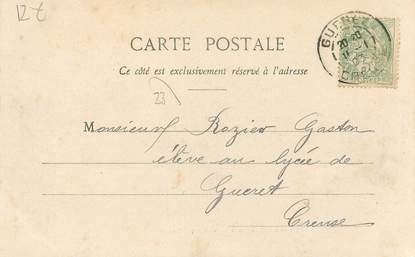 12 €
CARTE POSTALE
Ce côté est exclusivement réservé à l'adresse
23
Monsieur Rozier Gaston
élève au lycée de
Gueret
Creuse
GUERET
20